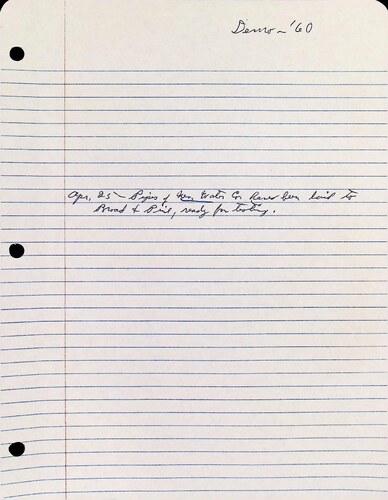 Demo - '60
Apr. 25 - Pipes of Water Co have been laid to
Broad & Pine, ready for testing.